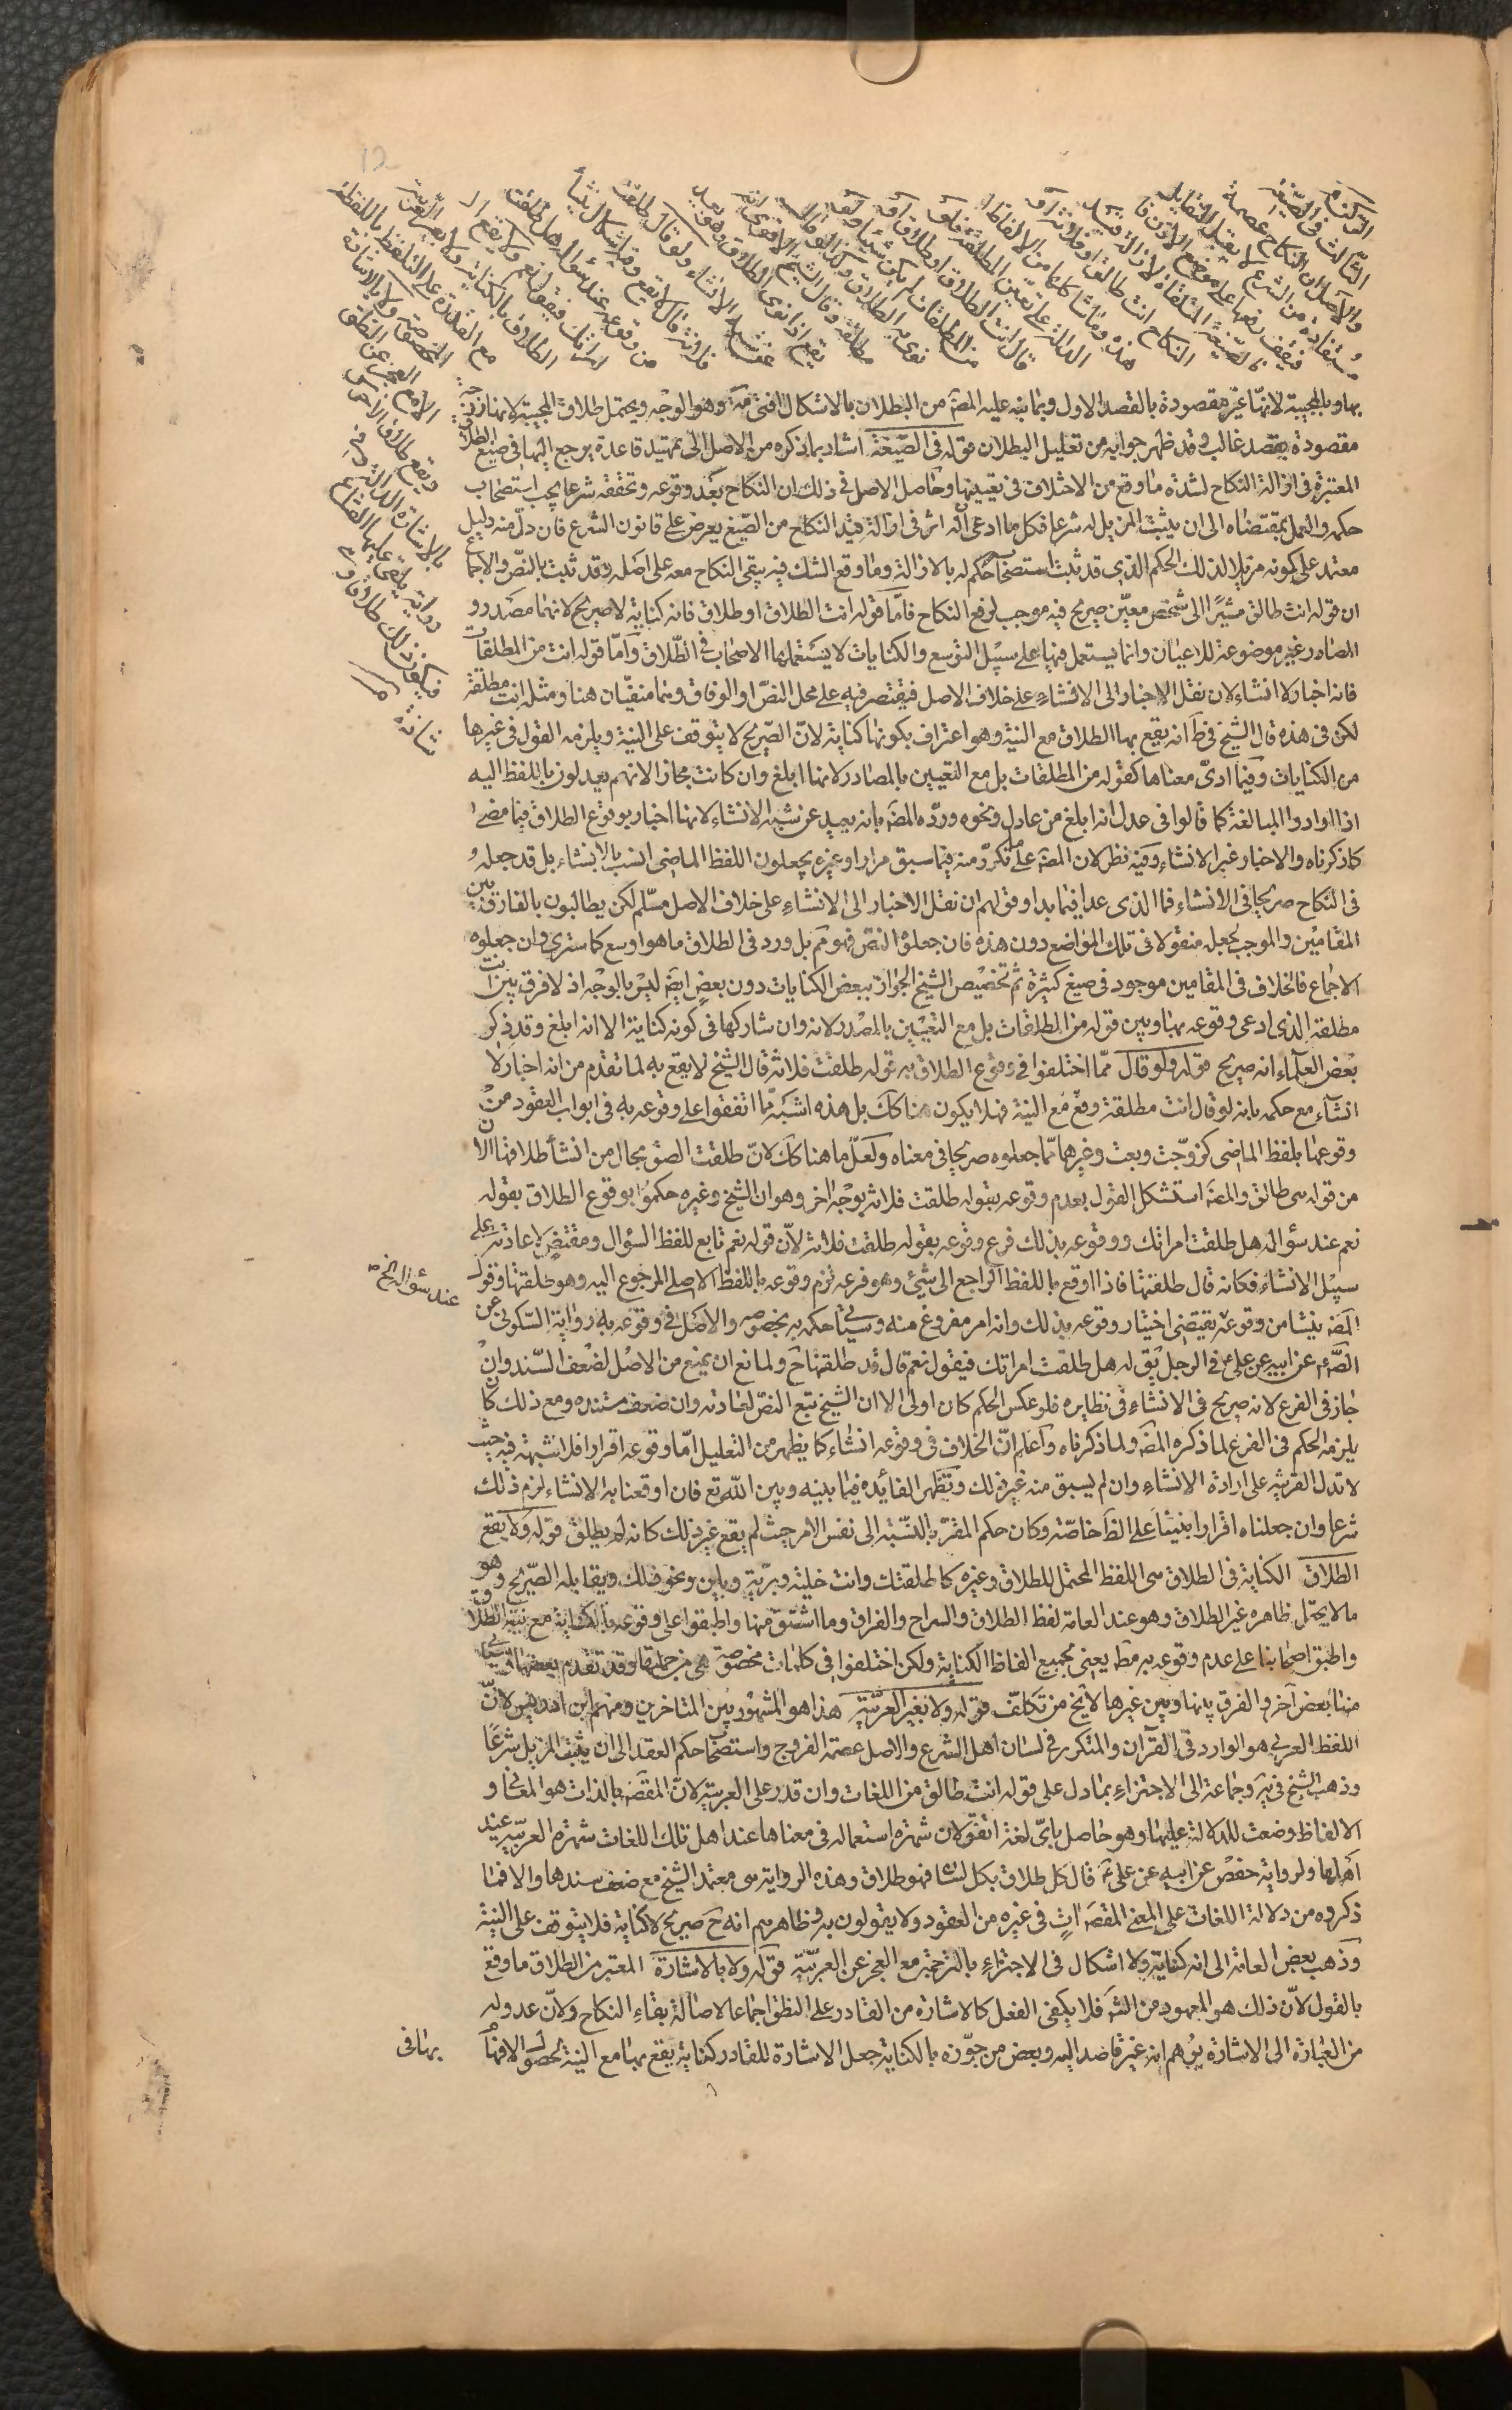 الركن الثالث في الصيغة
والاصل ان النكاح عصمة
مستفادة من الشرع لا يقبل التقايل
فيقف رفعها على موضع الاذن فا
لصيغة المتلقاة لازالة قيد
النكاح انت طالق او فلانة او
هذه وما شاكلها من الالفاظ
الدالة على تعيين المطلقة فلو
قال انت الطلاق او طلاق او
من المطلقات لم يكن شيئا ولو
نوى به الطلاق وكذا لو قال انت
مطلقة وقال الشيخ الاقوى انه
يقع اذا نوى الطلاق وهو بعيد
عن شبه الانشاء ولو قال طلقت
فلانة قال لا يقع وفيه اشكال ينشأ
من وقوعه عند سؤاله هل طلقت
امراتك فيقول نعم ولا يقع ا
لطلاق بالكناية ولا بغير العربية
مع القدرة على التلفظ باللفظة
المخصوصة ولا بالاشارة
الا مع العجز عن النطق
ويقع طلاق الاخرس
بالاشارة الدالة وفي
رواية يلقى عليها القناع
فيكون ذلك طلاقا وهي
شاذة
بها وبالمجيبة لانها غير مقصودة بالقصد الاول وبما نبه عليه المص من البطلان بالاشكال افتى فيه وهو الوجه ويحتمل طلاق المجيبة لانها زوجة
مقصودة بقصد غالب وقد ظهر جوابه من تعليل البطلان قوله في الصيغة اشار بما ذكره من الاصل الى تمهيد قاعدة يرجع اليها في صيغ الطلاق
المعتبرة في ازالة النكاح لشدة ما وقع من الاختلاف في تعيينها وحاصل الاصل في ذلك ان النكاح بعد وقوعه وتحققه شرعا يجب استصحاب
حكمه والعمل بمقتضاه الى ان يثبت المزيل له شرعا فكل ما ادعي انه اثر في ازالة قيد النكاح من الصيغ يعرض على قانون الشرع فان دل منه دليل
معتمد على كونه مزيلا لذلك الحكم الذي قد ثبت استصحابه حكم له بالازالة وما وقع الشك فيه يبقى النكاح معه على اصله وقد ثبت بالنص والاجماع
ان قوله انت طالق مشيرا الى شخص معين صريح فيه موجب لرفع النكاح فاما قوله انت الطلاق او طلاق فانه كناية لا صريح لانهما مصدر و
المصادر غير موضوعة للاعيان وانما يستعمل فيها على سبيل التوسع والكنايات لا يستعملها الاصحاب في الطلاق واما قوله انت من المطلقات
فانه اخبار لا انشاء لان نقل الاخبار الى الانشاء على خلاف الاصل فيقتصر فيه على محل النص او الوفاق وهما منفيان هنا ومثله انت مطلقة
لكن في هذه قال الشيخ في ط انه يقع بها الطلاق مع النية وهو اعتراف بكونها كناية لان الصريح لا يتوقف على النية ويلزمه القول في غيرها
من الكنايات وفيما ادى معناها كقوله من المطلقات بل مع التعيين بالمصادر لانها ابلغ وان كانت مجازا لانهم يعدلون باللفظ اليه
اذا ارادوا المبالغة كما قالوا في عدل انه ابلغ من عادل ونحوه ورده المص بانه بعيد عن شبه الانشاء لانها اخبار بوقوع الطلاق فيما مضى
كما ذكرناه والاخبار غير الانشاء وفيه نظر لان المص على ما تكرر منه فيما سبق مرارا وغيره يجعلون اللفظ الماضي انسب بالانشاء بل قد جعله و
في النكاح صريحا في الانشاء فما الذي عدا فيما بدا وقولهم ان نقل الاخبار الى الانشاء على خلاف الاصل مسلم لكن يطالبون بالفارق بين
المقامين والموجب لجعله منقولا في تلك المواضع دون هذه فان جعلوه النص فهو مم بل ورد في الطلاق ما هو اوسع كما سترى وان جعلوه
الاجماع فالخلاف في المقامين موجود في صيغ كثيرة ثم تخصيص الشيخ الجواز ببعض الكنايات دون بعض ايض ليس بالوجه اذ لا فرق بين انت
مطلقة الذي ادعى وقوعه بها وبين قوله من المطلقات بل مع التعيين بالمصدر لانه وان شاركها في كونه كناية الا انه ابلغ وقد ذكر
بعض العلماء انه صريح قوله ولو قال مما اختلفوا في وقوع الطلاق به قوله طلقت فلانة قال الشيخ لا يقع به لما تقدم من انه اخبار لا
انشاء مع حكمه بانه لو قال انت مطلقة وقع مع النية فهلا يكون هنا كك بل هذه اشبه مما اتفقوا على وقوعه به في ابواب العقود من
وقوعها بلفظ الماضي كزوجت وبعت وغيرهما مما جعلوه صريحا في معناه ولعل ما هنا كك لان طلقت الصق بحال من انشأ طلاقها الان
من قوله هي طالق والمص استشكل القول بعدم وقوعه بقوله طلقت فلانة بوجه اخر وهو ان الشيخ وغيره حكموا بوقوع الطلاق بقوله
نعم عند سؤاله هل طلقت امراتك ووقوعه بذلك فرع وقوعه بقوله طلقت فلانة لان قوله نعم تابع للفظ السؤال ومقتض لاعادته على
سبيل الانشاء فكانه قال طلقتها فاذا اوقع باللفظ الراجع الى شيئ وهو فرعه لزم وقوعه باللفظ الاصلي المرجوع اليه وهو طلقتها وقول
المص ينشأ من وقوعه يقتضي اختيار وقوعه بذلك وانه امر مفروغ منه وسيأتي حكمه به بخصوصه والاصل في وقوعه به رواية السكوني عن
الص ع عن ابيه عن علي ع في الرجل يق له هل طلقت امراتك فيقول نعم قال قد طلقها ح ولمانع ان يمنع من الاصل لضعف السند وان
جاز في الفرع لانه صريح في الانشاء في نظايره فلو عكس الحكم كان اولى الا ان الشيخ تبع النص لعادته وان ضعف مستنده ومع ذلك كان
يلزمه الحكم في الفرع لما ذكره المص ولما ذكرناه واعلم ان الخلاف في وقوعه انشاء كما يظهر من التعليل اما وقوعه اقرارا فلا شبهة فيه حيث
لا تدل القرينة على ارادة الانشاء وان لم يسبق منه غير ذلك وتظهر الفائده فيما بينه وبين الله تع فان اوقعنا به الانشاء لزم ذلك
شرعا وان جعلناه اقرارا بنينا على الظ خاصة وكان حكم المقر بالنسبة الى نفس الامر حيث لم يقع غير ذلك كانه لم يطلق قوله ولا يقع
الطلاق الكناية في الطلاق هي اللفظ المحتمل للطلاق وغيره كاطلقتك وانت خلية وبرية وباين ونحو ذلك ويقابله الصريح وهو
ما لا يحتمل ظاهره غير الطلاق وهو عند العامة لفظ الطلاق والسراح والفراق وما اشتق منها واطبقوا على وقوعه بالكناية مع نية الطلاق
واطبق اصحابنا على عدم وقوعه به مط يعني بجميع الفاظ الكناية ولكن اختلفوا في كلمات مخصوصة هي من جملتها وقد تقدم بعضها وسيأتي
منها بعض آخر والفرق بينها وبين غيرها لا يخ من تكلف قوله ولا بغير العربية هذا هو المشهور بين المتاخرين ومنهم ابن ادريس لان
اللفظ العربي هو الوارد في القرآن والمتكرر في لسان اهل الشرع والاصل عصمة الفروج واستصحاب حكم العقد الى ان يثبت المزيل شرعا
وذهب الشيخ في ية وجماعة الى الاجتزاء بما دل على قوله انت طالق من اللغات وان قدر على العربية لان المقص بالذات هو المعاني و
الالفاظ وضعت للدلالة عليها وهو حاصل باي لغة اتفق ولان شهرة استعماله في معناها عند اهل تلك اللغات شهرة العربية عند
اهلها ولرواية حفص عن ابيه عن علي ع قال كل طلاق بكل لسان فهو طلاق وهذه الرواية هي معتمد الشيخ مع ضعف سندها والا فما
ذكروه من دلالة اللغات على المعنى المقص ات في غيره من العقود ولا يقولون به وظاهرهم انه ح صريح لا كناية فلا يتوقف على النية
وذهب بعض العامة الى انه كناية ولا اشكال في الاجتزاء بالترجمة مع العجز عن العربية قوله ولا بالاشارة المعتبر من الطلاق ما وقع
بالقول لان ذلك هو المعهود من الشرع فلا يكفي الفعل كالاشارة من القادر على النطق اجماعا لاصالة بقاء النكاح ولان عدوله
من العبارة الى الاشارة يوهم انه غير قاصد اليه وبعض من جوزه بالكناية جعل الاشارة للقادر كناية يقع بها مع النية لحصول الافهام
عند سؤاله الخ ص
بها في